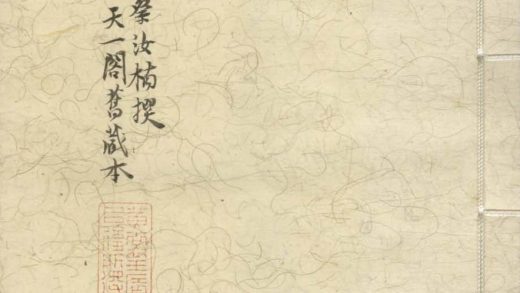 蔡汝楠撰
天一閣舊藏本